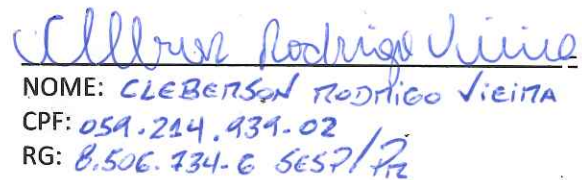 Cleberson Rodrigo Vieira
NOME: CLEBERSON RODRIGO VIEIRA
CPF: 059.214.939-02
RG: 8.506.734-6 SESP/PR